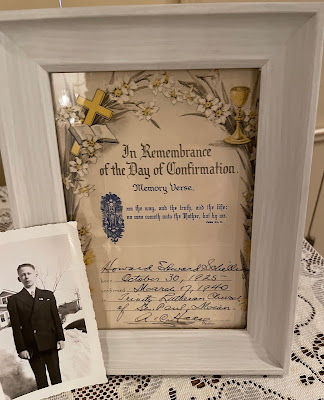 In Remembrance
of the Day of Confirmation.
Memory Verse.
am the way, and the truth, and the life:
no man cometh unto the Father, but by me.
Howard Edward
October 30, 1925
March 17, 1940
Trinity Lutheran Church
of St. Paul,
A. C.